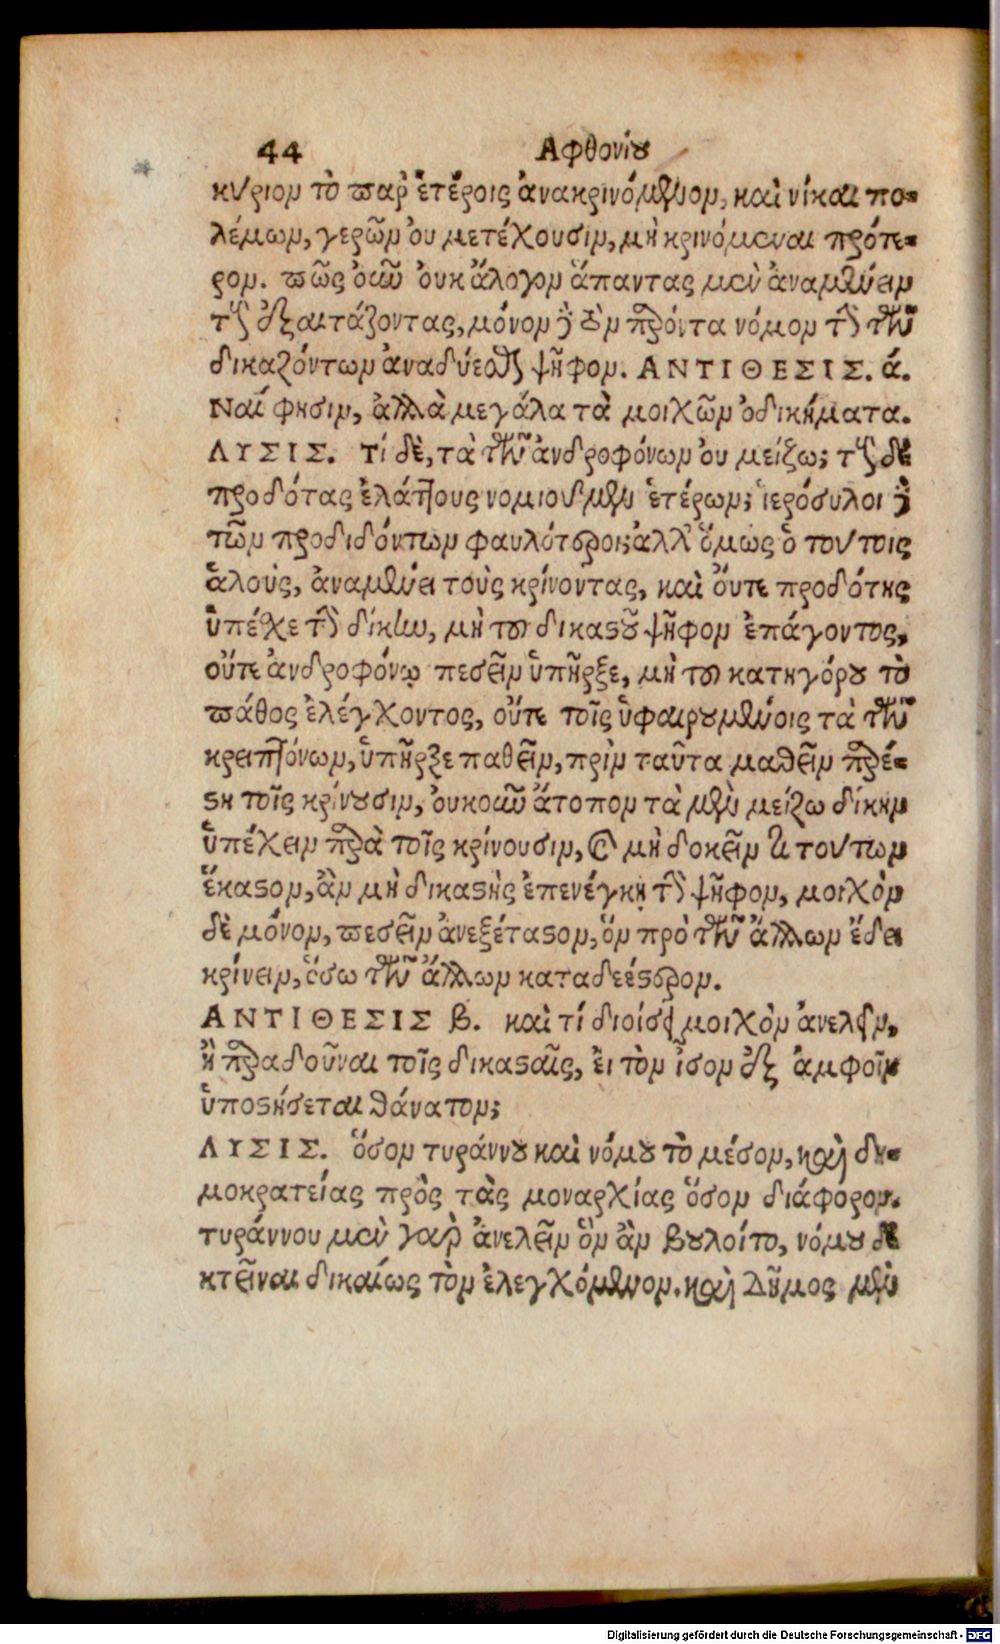 44 Αφθονίου
κύριον τὸ παρ' ἑτέροις ἀνακρινόμενον, καὶ νίκαι πο-
λέμων, γερῶν οὐ μετέχουσιν, μὴ κρινόμεναι πρότε-
ρον. πῶς οὖν οὐκ ἄλογον ἅπαντας μὲν ἀναμένειν
τοὺς ἐξαιτάζοντας, μόνον δὲ τὸν παρόντα νόμον τὴν τῶν
δικαζόντων ἀναδύεσθαι ψῆφον. ΑΝΤΙΘΕΣΙΣ. ά.
Ναί φησιν, ἀλλὰ μεγάλα τὰ μοιχῶν ὀδικήματα.
ΛΥΣΙΣ. Τί δὲ, τὰ τῶν ἀνδροφόνων οὐ μείζω; τοὺς δὲ
προδότας ἐλάττους νομιοῦμεν ἑτέρων; ἱερόσυλοι δὲ
τῶν προδιδόντων φαυλότεροι; ἀλλ' ὅμως ὁ τούτοις
ἁλοὺς, ἀναμένει τοὺς κρίνοντας, καὶ οὔτε προδότης
ὑπέχε τὴν δίκην, μὴ τοῦ δικαστοῦ ψῆφον ἐπάγοντος,
οὔτε ἀνδροφόνῳ πεσεῖν ὑπῆρξε, μὴ τοῦ κατηγόρου τὸ
πάθος ἐλέγχοντος, οὔτε τοῖς ὑφαιρουμένοις τὰ τῶν
κρειττόνων, ὑπῆρξε παθεῖν, πρὶν ταῦτα μαθεῖν παρέ-
στη τοῖς κρίνουσιν, οὐκοῦν ἄτοπον τὰ μὲν μείζω δίκην
ὑπέχειν παρὰ τοῖς κρίνουσιν, καὶ μὴ δοκεῖν εἶ τούτων
ἕκαστον, ἂν μὴ δικαστὴς ἐπενέγκῃ τὴν ψῆφον, μοιχὸν
δὲ μόνον, πεσεῖν ἀνεξέταστον, ὃν πρὸ τῶν ἄλλων ἔδει
κρίνειν, ὅσω τῶν ἄλλων καταδεέστερον.
ΑΝΤΙΘΕΣΙΣ β. καὶ τί διοίσει μοιχὸν ἀνελεῖν,
ἢ παραδοῦναι τοῖς δικασταῖς, εἰ τὸν ἶσον ἐξ ἀμφοῖν
ὑποστήσεται θάνατον;
ΛΥΣΙΣ. ὅσον τυράννου καὶ νόμου τὸ μέσον, καὶ δη-
μοκρατείας πρὸς τὰς μοναρχίας ὅσον διάφορον.
τυράννου μὲν γὰρ ἀνελεῖν ὃν ἂν βούλοίτο, νόμου δὲ
κτεῖναι δικαίως τὸν ἐλεγχόμενον. καὶ Δῆμος μὲν
Digitalisierung gefördert durch die Deutsche Forschungsgemeinschaft - DFG